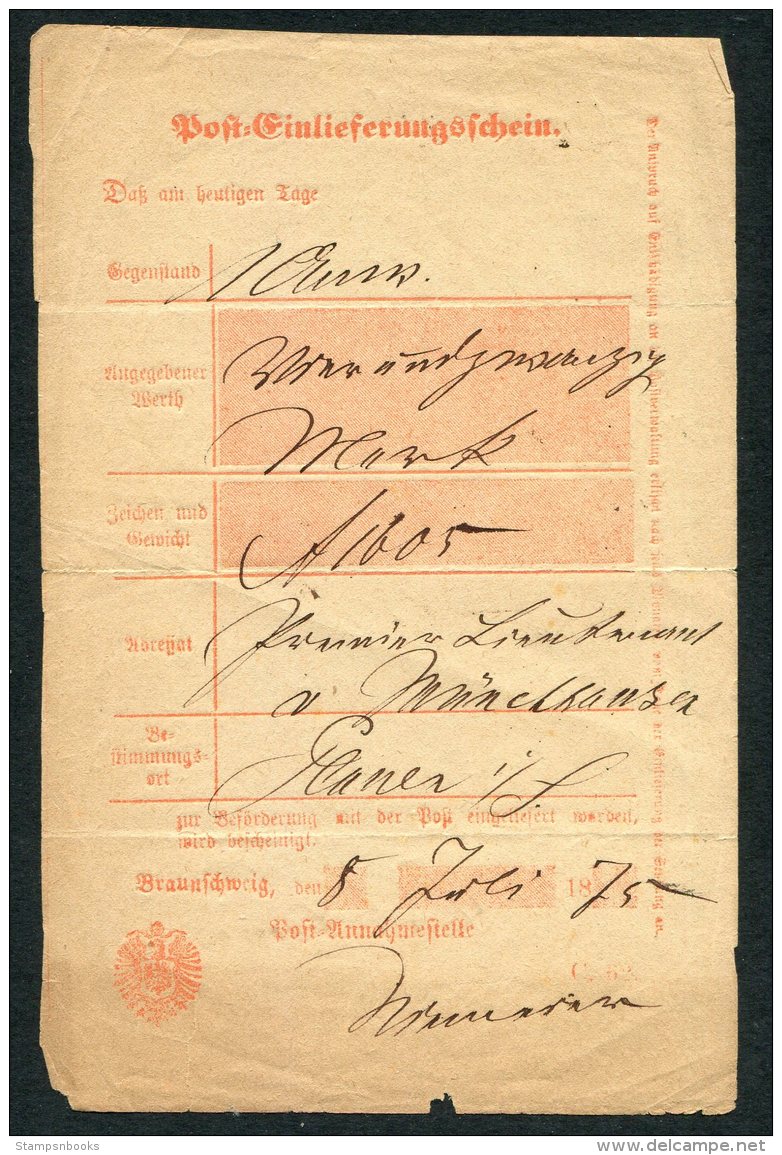 Post-Einlieferungsschein.
Daß am heutigen Tage
Gegenstand
Angegebener Werth
Vierundzwanzig
Mark
Zeichen und Gewicht
1605
Adressat
Premier Lieutenant
v Münchhausen
Be-
stimmungs-
ort
Plauen i/
zur Beförderung mit der Post eingeliefert worden,
wird bescheinigt.
Braunschweig, den 8 Juli 1875
Post-Annahmestelle
Der Anspruch auf Entschädigung an die Postverwaltung erlischt nach sechs Monaten, vom Tage der Einlieferung der Sendung an.
Stampsnbooks